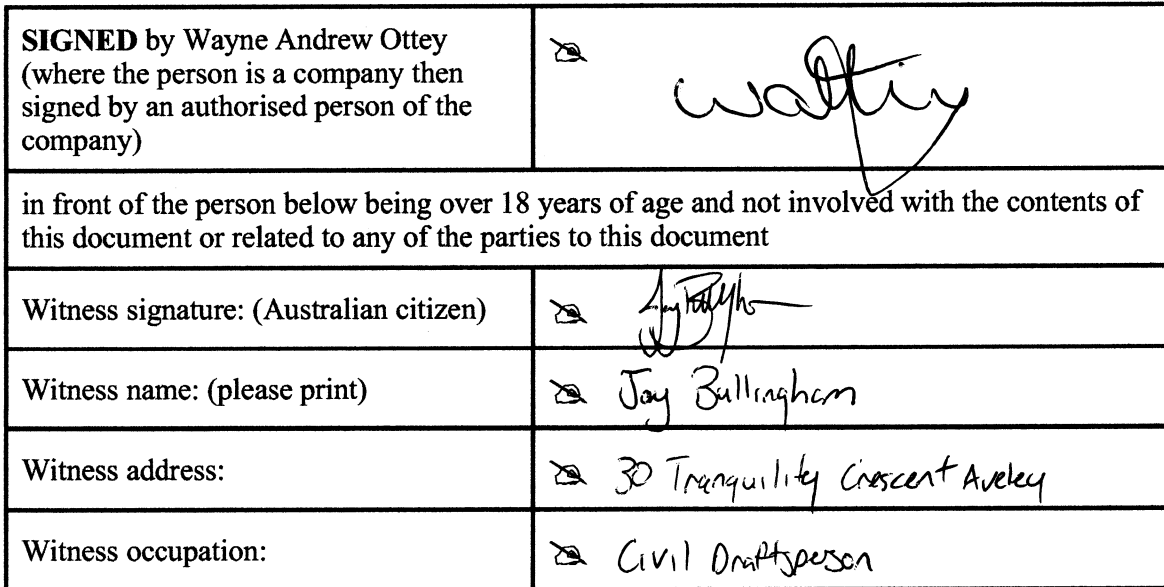 SIGNED by Wayne Andrew Ottey
(where the person is a company then
signed by an authorised person of the
company)
in front of the person below being over 18 years of age and not involved with the contents of
this document or related to any of the parties to this document
Witness signature: (Australian citizen)
Witness name: (please print) Jay Bullingham
Witness address: 30 Tranquility Crescent Aveley
Witness occupation: Civil Draftsperson